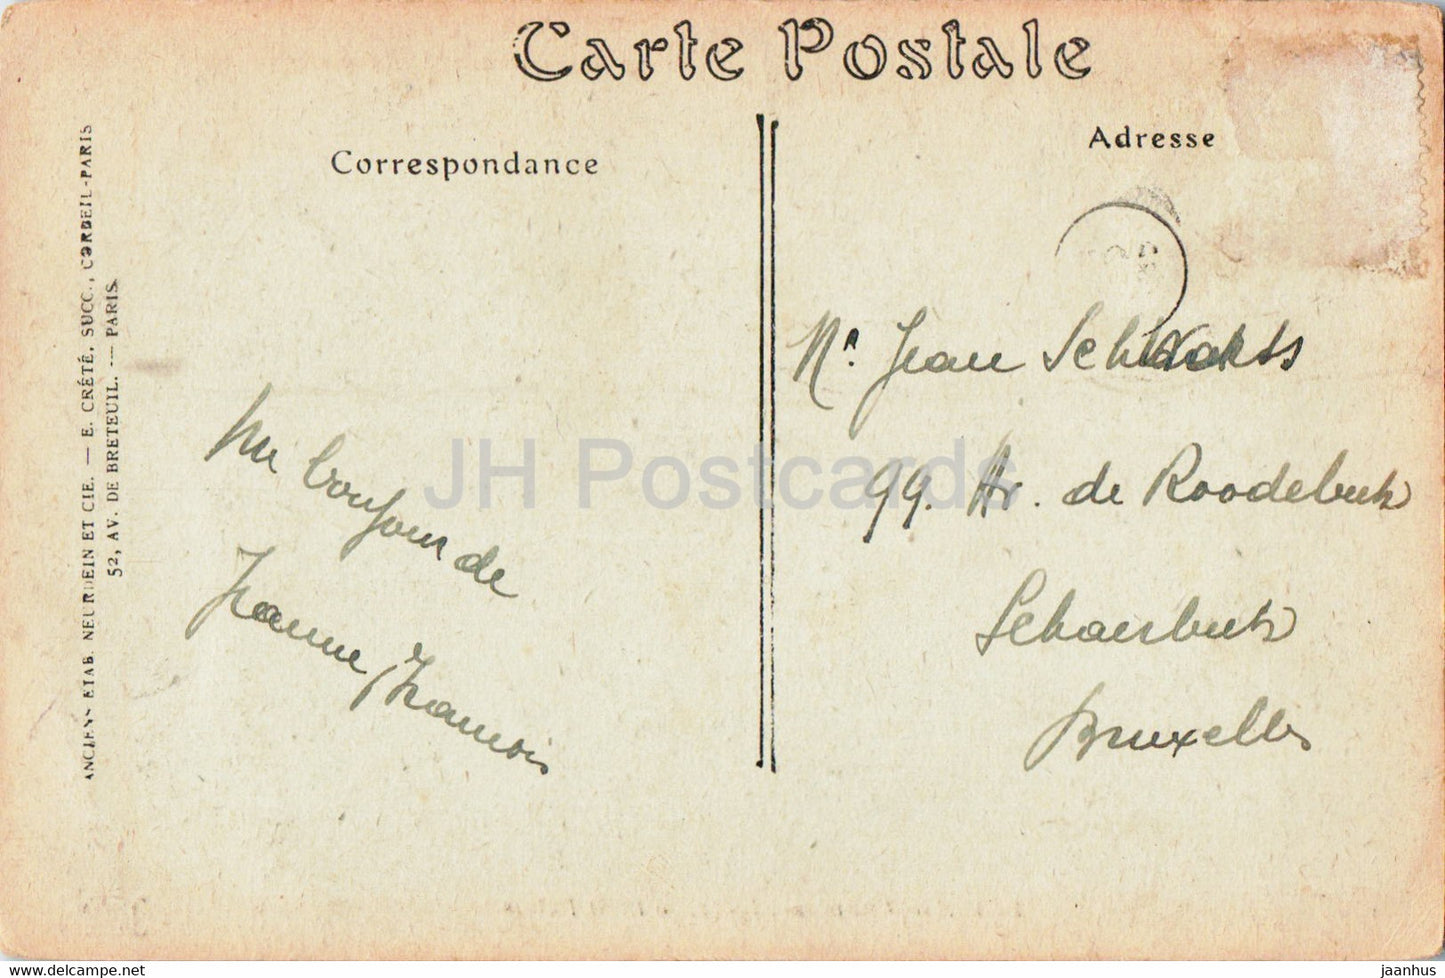 Carte Postale
Correspondance
Adresse
ANCIENS ETAB. NEURDEIN ET CIE. — E. CRÉTÉ, SUCC., CORBEIL-PARIS
52, AV. DE BRETEUIL. — PARIS.
un bonjour de
Jeanne, François
Mr. Jean
99. Av. de Roodebeek
Schaerbeek
Bruxelles
JH Postcards
https://www.jhpostcards.com
jaanhus